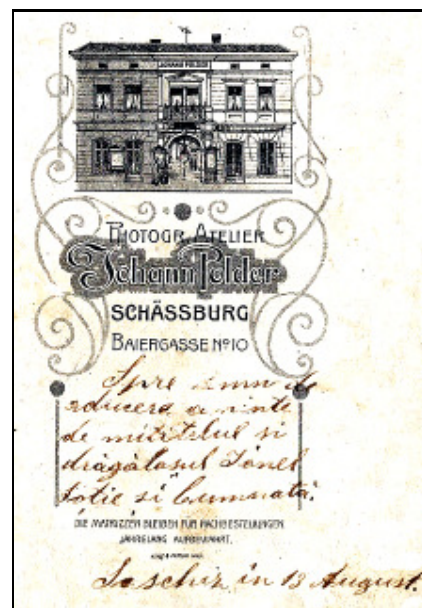 JOHANN POLDER
PHOTOGR. ATELIER
Johann Polder
SCHÄSSBURG
BAIERGASSE Nº 10
Spre semn de
aducere a minte
de mititelul si
drăgălasul Iónel
Sotie si Cumnată.
DIE MATRIZEN BLEIBEN FÜR NACHBESTELLUNGEN
JAHRELANG AUFBEWAHRT.
Saschiz in 13 August.